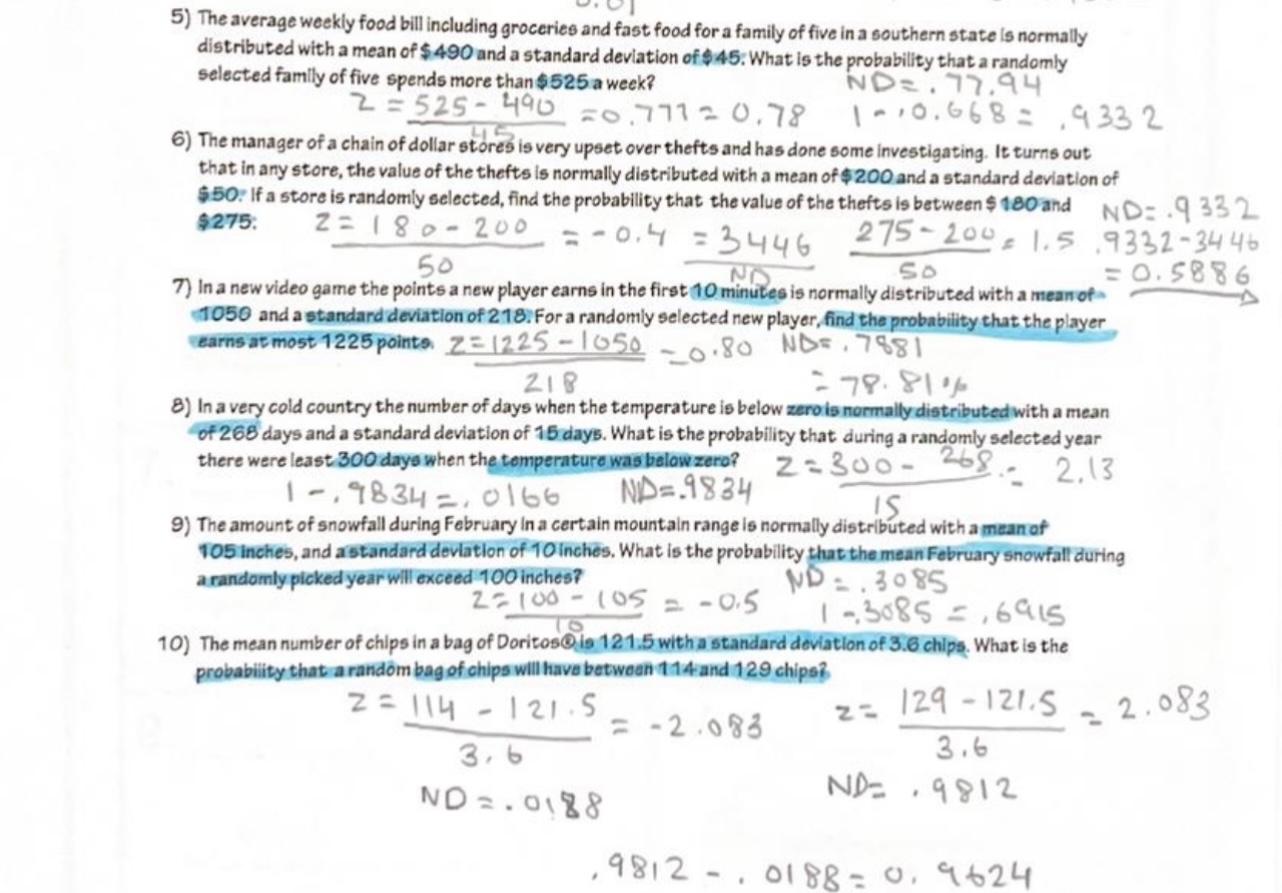 5) The average weekly food bill including groceries and fast food for a family of five in a southern state is normally
distributed with a mean of $490 and a standard deviation of $45. What is the probability that a randomly
selected family of five spends more than $525 a week?
ND = .77.94
Z = 525 - 490
45
= 0.777 = 0.78
1 - .0.668 = .9332
6) The manager of a chain of dollar stores is very upset over thefts and has done some investigating. It turns out
that in any store, the value of the thefts is normally distributed with a mean of $200 and a standard deviation of
$50. If a store is randomly selected, find the probability that the value of the thefts is between $180 and
$275.
Z = 180 - 200
50
= -0.4
= 3446
ND
275 - 200
50
= 1.5
ND = .9332
.9332 - 3446
= 0.5886
7) In a new video game the points a new player earns in the first 10 minutes is normally distributed with a mean of
1050 and a standard deviation of 218. For a randomly selected new player, find the probability that the player
earns at most 1225 points.
Z = 1225 - 1050
218
= 0.80
ND = .7881
= 78.81%
8) In a very cold country the number of days when the temperature is below zero is normally distributed with a mean
of 268 days and a standard deviation of 15 days. What is the probability that during a randomly selected year
there were least 300 days when the temperature was below zero?
Z = 300 - 268
15
= 2.13
1 - .9834 = .0166
ND = .9834
9) The amount of snowfall during February in a certain mountain range is normally distributed with a mean of
105 inches, and a standard deviation of 10 inches. What is the probability that the mean February snowfall during
a randomly picked year will exceed 100 inches?
ND = .3085
Z = 100 - 105
10
= -0.5
1 - .3085 = .6915
10) The mean number of chips in a bag of Doritos® is 121.5 with a standard deviation of 3.6 chips. What is the
probability that a random bag of chips will have between 114 and 129 chips?
Z = 114 - 121.5
3.6
= -2.083
z = 129 - 121.5
3.6
= 2.083
ND = .0188
ND = .9812
.9812 - .0188 = 0.9624